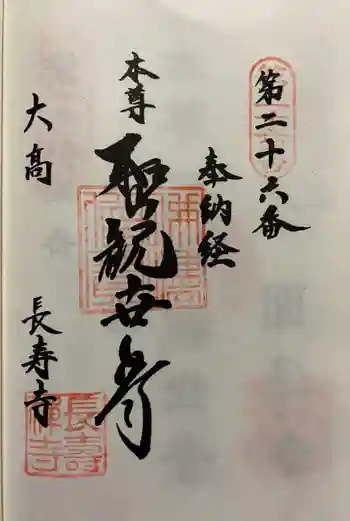 第二十六番
奉納経
本尊
聖観世音
大高
長寿寺
長壽禅寺